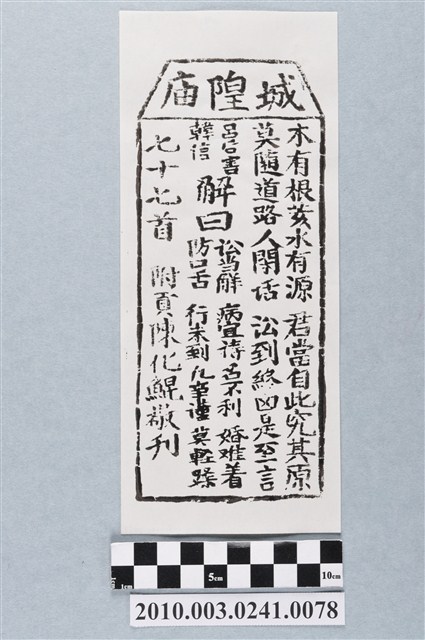 城隍庙
木有根荄水有源 君當自此究其原
莫隨道路人閒話 訟到終凶是至言
呂后害韓信
解曰
訟当解 病宜待 名不利 婚难着
防口舌 行未到 凡事謹 莫輕躁
七十七首 附頁陳化鯤敬刊
1cm 5cm 10cm
2010.003.0241.0078